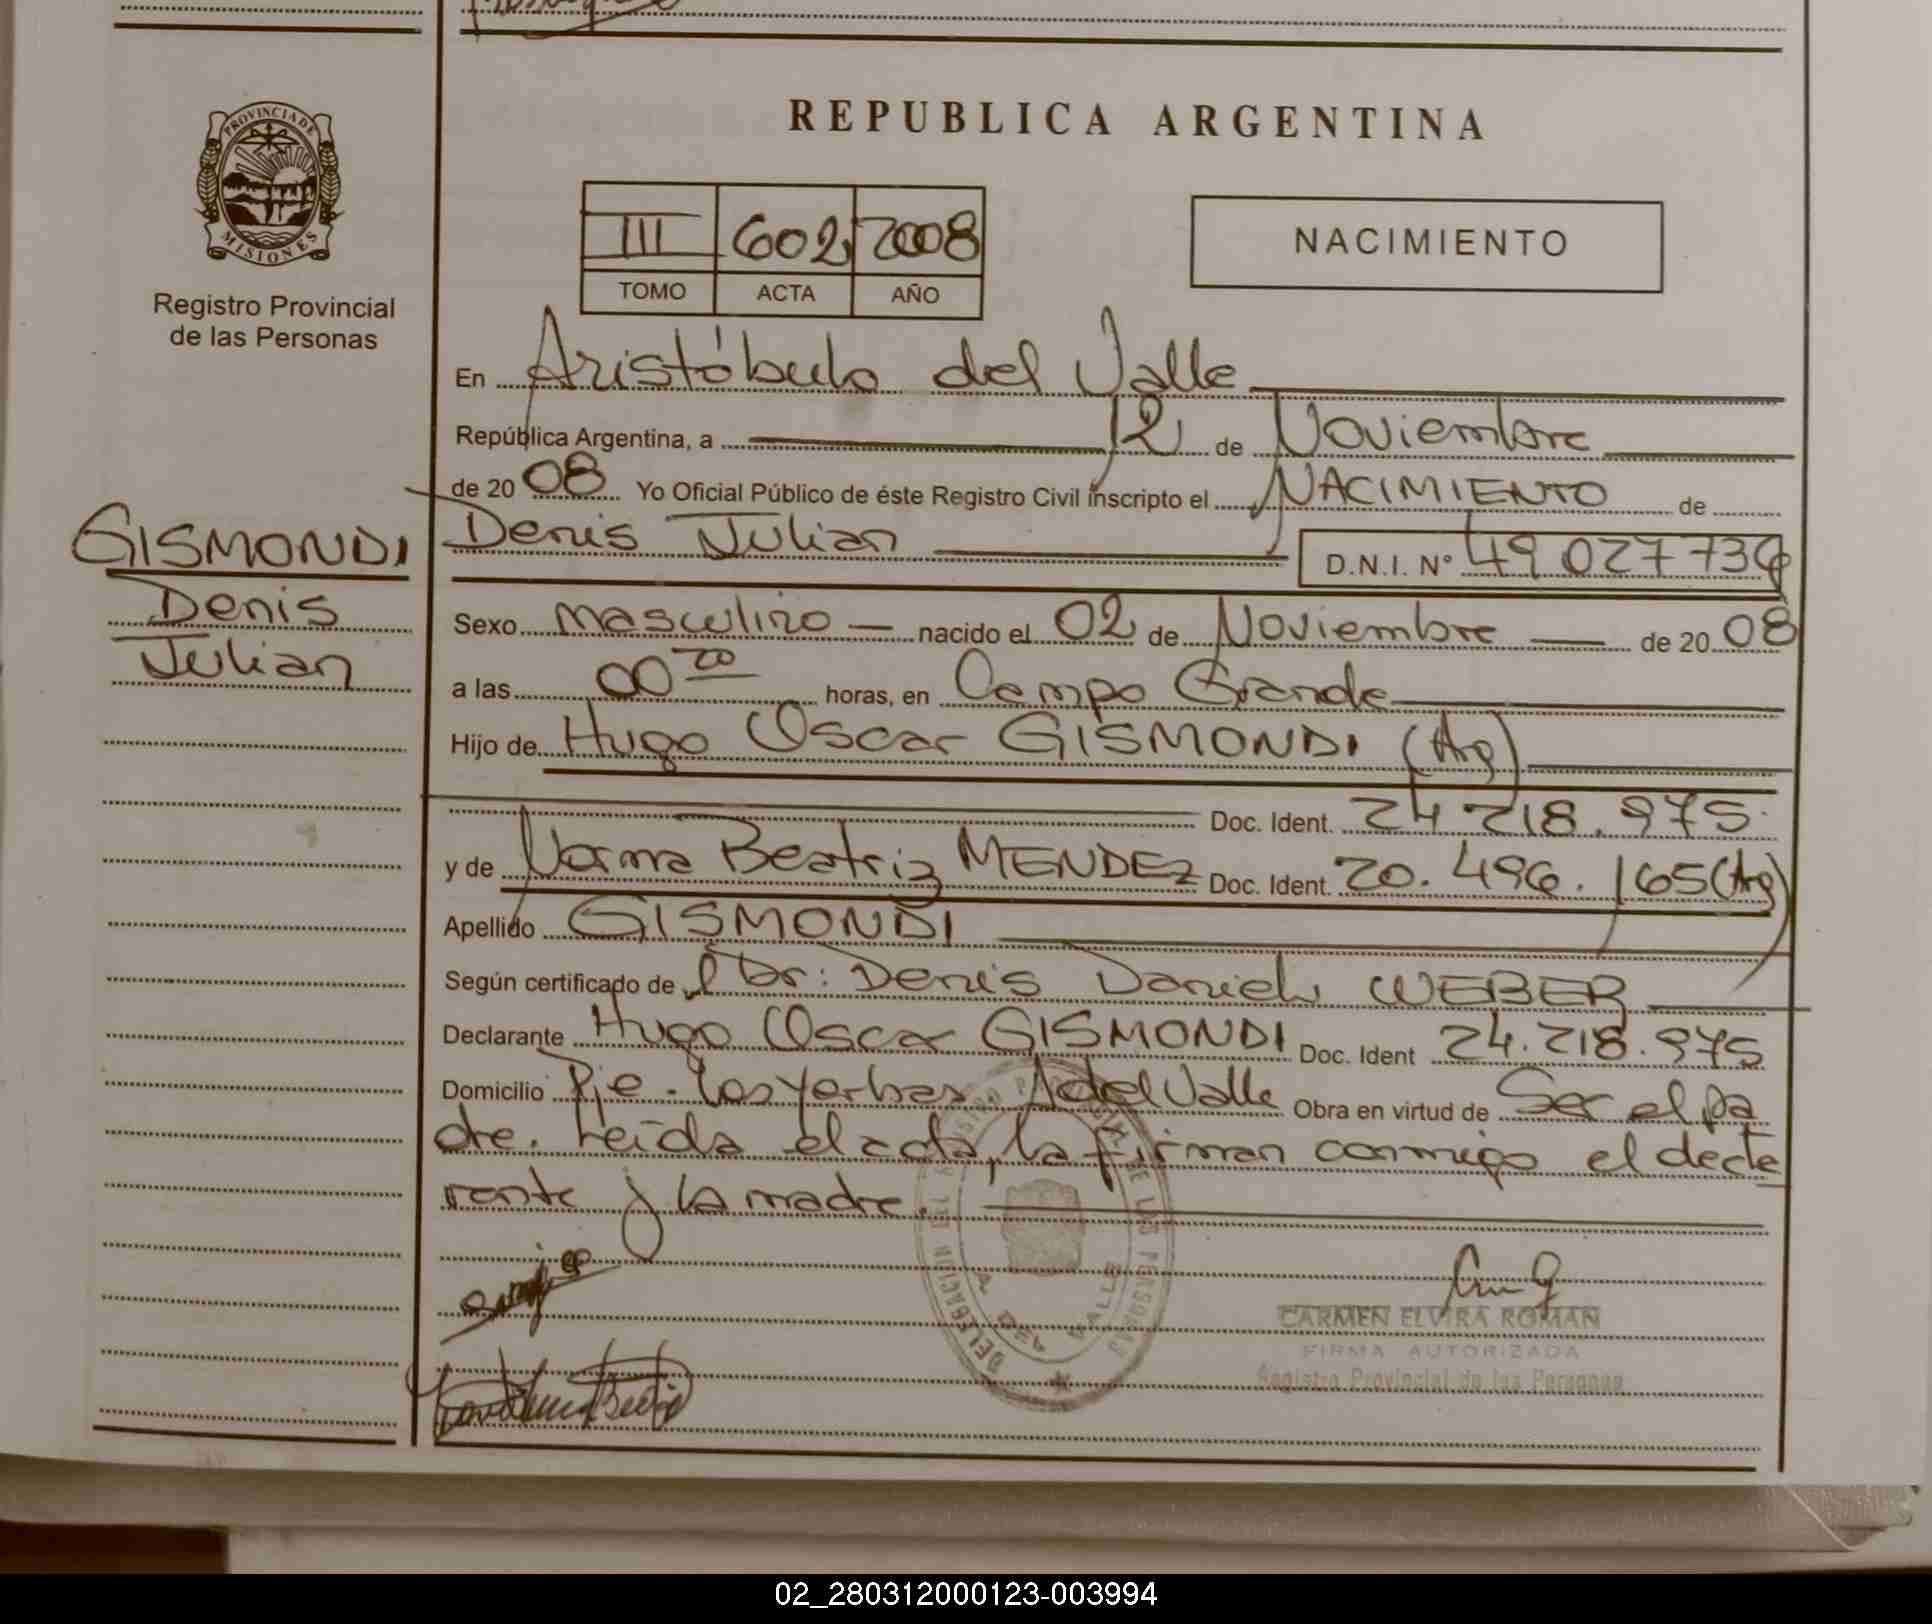 REPUBLICA ARGENTINA
PROVINCIA DE
MISIONES
Registro Provincial
de las Personas
III 602 2008
TOMO ACTA AÑO
NACIMIENTO
En Aristóbulo del Valle
República Argentina, a 12 de Noviembre
de 20 08 Yo Oficial Público de éste Registro Civil inscripto el NACIMIENTO de
GISMONDI
Denis
Julian
Denis Julian D.N.I. N° 49 027 734
Sexo masculino nacido el 02 de Noviembre de 20 08
a las 00 20 horas, en Campo Grande
Hijo de Hugo Oscar GISMONDI (Arg)
Doc. Ident. 24 218.975.
y de Norma Beatriz MENDEZ Doc. Ident. 20.496.165 (Arg)
Apellido GISMONDI
Según certificado de l Dr: Denis Daniel WEBER
Declarante Hugo Oscar GISMONDI Doc. Ident 24.218.975
Domicilio Pje. Las Yerbas A del Valle Obra en virtud de Ser el pa
dre. Leída el acta, la firman conmigo el decla
rante y la madre.
DELEGACION
A. DEL VALLE
DE LAS PERSONAS
CARMEN ELVIRA ROMAN
FIRMA AUTORIZADA
Registro Provincial de las Personas
02_280312000123-003994